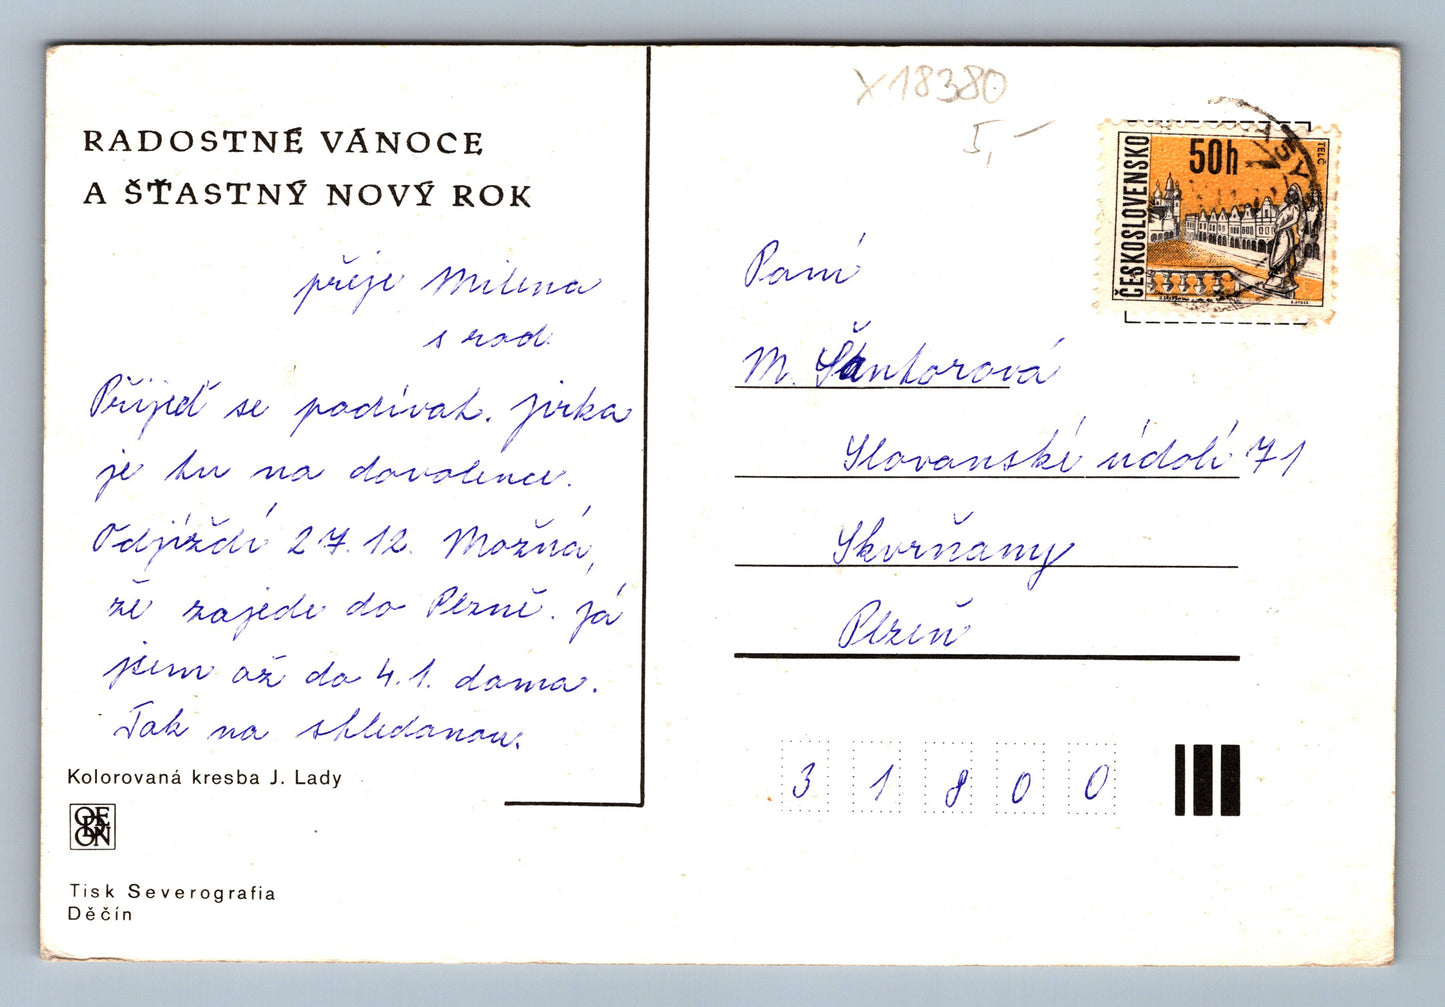 RADOSTNÉ VÁNOCE
A ŠŤASTNÝ NOVÝ ROK
přeje Milena
s rod.
Přijeď se podívat. Jirka
je tu na dovolence.
Odjíždí 27.12. Možná,
že zajede do Plzně. Já
jsem až do 4.1. doma.
Tak na shledanou.
Kolorovaná kresba J. Lady
ODEON
Tisk Severografia
Děčín
X18380
5,-
ČESKOSLOVENSKO
50h
TELČ
Paní
M. Šantorová
Slovanské údolí 71
Skvrňany
Plzeň
3 1 8 0 0